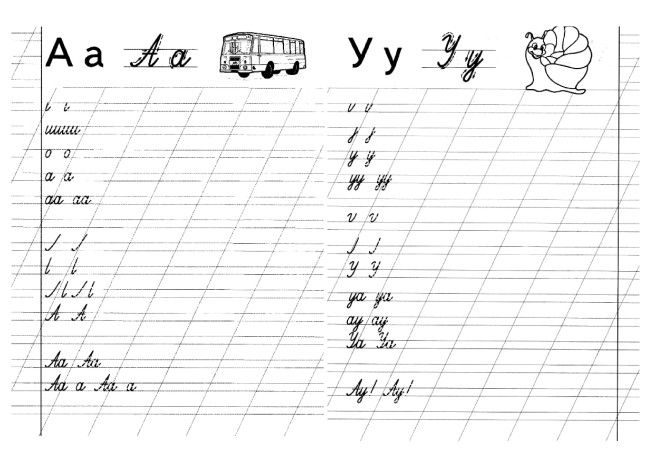 А а А а
ииии
о о
а а
аа аа
А А
Аа Аа
Аа а Аа а
У у У у
у у
уу уу
У У
уа уа
ау ау
Уа Уа
Ау! Ау!